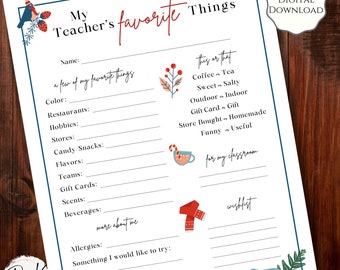 My
Teacher's favorite Things
DIGITAL
DOWNLOAD
Name:
a few of my favorite things
Color:
Restaurants:
Hobbies:
Stores:
Candy/Snacks:
Flavors:
Teams:
Gift Cards:
Scents:
Beverages:
more about me
Allergies:
Something I would like to try:
this or that
Coffee or Tea
Sweet or Salty
Outdoor or Indoor
Gift Card or Gift
Store Bought or Homemade
Funny or Useful
for my classroom
wishlist